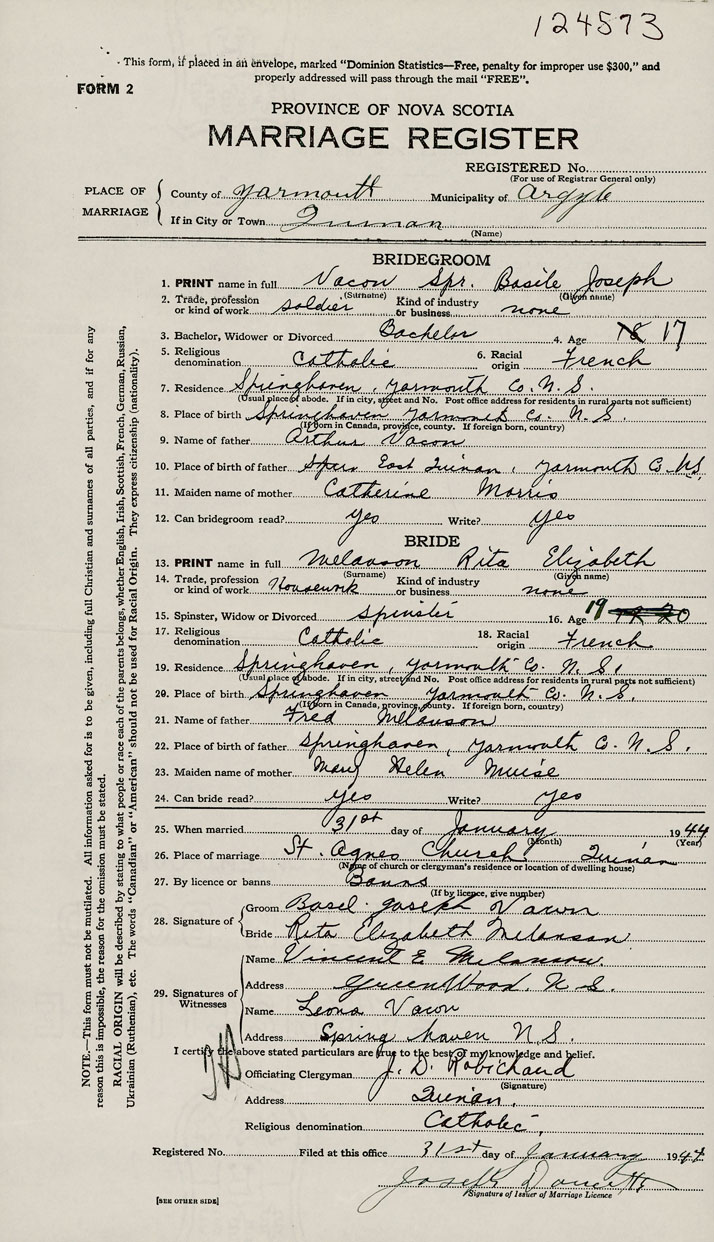 124573
This form, if placed in an envelope, marked "Dominion Statistics—Free, penalty for improper use $300," and
properly addressed will pass through the mail "FREE".
FORM 2
PROVINCE OF NOVA SCOTIA
MARRIAGE REGISTER
REGISTERED No.
(For use of Registrar General only)
PLACE OF MARRIAGE
County of Yarmouth Municipality of Argyle
If in City or Town Quinan
(Name)
BRIDEGROOM
1. PRINT name in full Vacon Spr. Basile Joseph
(Surname) (Given name)
2. Trade, profession or kind of work soldier Kind of industry or business none
3. Bachelor, Widower or Divorced Bachelor 4. Age 18 17
5. Religious denomination Catholic 6. Racial origin French
7. Residence Springhaven, Yarmouth Co. N. S.
(Usual place of abode. If in city, street and No. Post office address for residents in rural parts not sufficient)
8. Place of birth Springhaven Yarmouth Co. N. S.
(If born in Canada, province, county. If foreign born, country)
9. Name of father Arthur Vacon
10. Place of birth of father East Quinan, Yarmouth Co. N.S.
11. Maiden name of mother Catherine Morris
12. Can bridegroom read? yes Write? yes
BRIDE
13. PRINT name in full Melanson Rita Elizabeth
(Surname) (Given name)
14. Trade, profession or kind of work Housework Kind of industry or business none
15. Spinster, Widow or Divorced Spinster 16. Age 19 20
17. Religious denomination Catholic 18. Racial origin French
19. Residence Springhaven, Yarmouth Co. N. S.
(Usual place of abode. If in city, street and No. Post office address for residents in rural parts not sufficient)
20. Place of birth Springhaven Yarmouth Co. N. S.
(If born in Canada, province, county. If foreign born, country)
21. Name of father Fred Melanson
22. Place of birth of father Springhaven, Yarmouth Co. N. S.
23. Maiden name of mother Mary Helen Muise
24. Can bride read? yes Write? yes
25. When married 31st day of January 1944
(Month) (Year)
26. Place of marriage St. Agnes Church Quinan
(Name of church or clergyman's residence or location of dwelling house)
27. By licence or banns Banns
(If by licence, give number)
28. Signature of
Groom Basel Joseph Vacon
Bride Rita Elizabeth Melanson
29. Signatures of Witnesses
Name Vincent E Melanson
Address GreenWood. N S.
Name Leona Vacon
Address Spring haven N S.
I certify the above stated particulars are true to the best of my knowledge and belief.
Officiating Clergyman J. D. Robichaud
(Signature)
Address Quinan,
Religious denomination Catholic,
Registered No. Filed at this office 31st day of January 1944
Joseph Doucette
Signature of Issuer of Marriage Licence
[SEE OTHER SIDE]
NOTE.—This form must not be mutilated. All information asked for is to be given, including full Christian and surnames of all parties, and if for any
reason this is impossible, the reason for the omission must be stated.
RACIAL ORIGIN will be described by stating to what people or race each of the parents belongs, whether English, Irish, Scottish, French, German, Russian,
Ukrainian (Ruthenian), etc. The words "Canadian" or "American" should not be used for Racial Origin. They express citizenship (nationality).